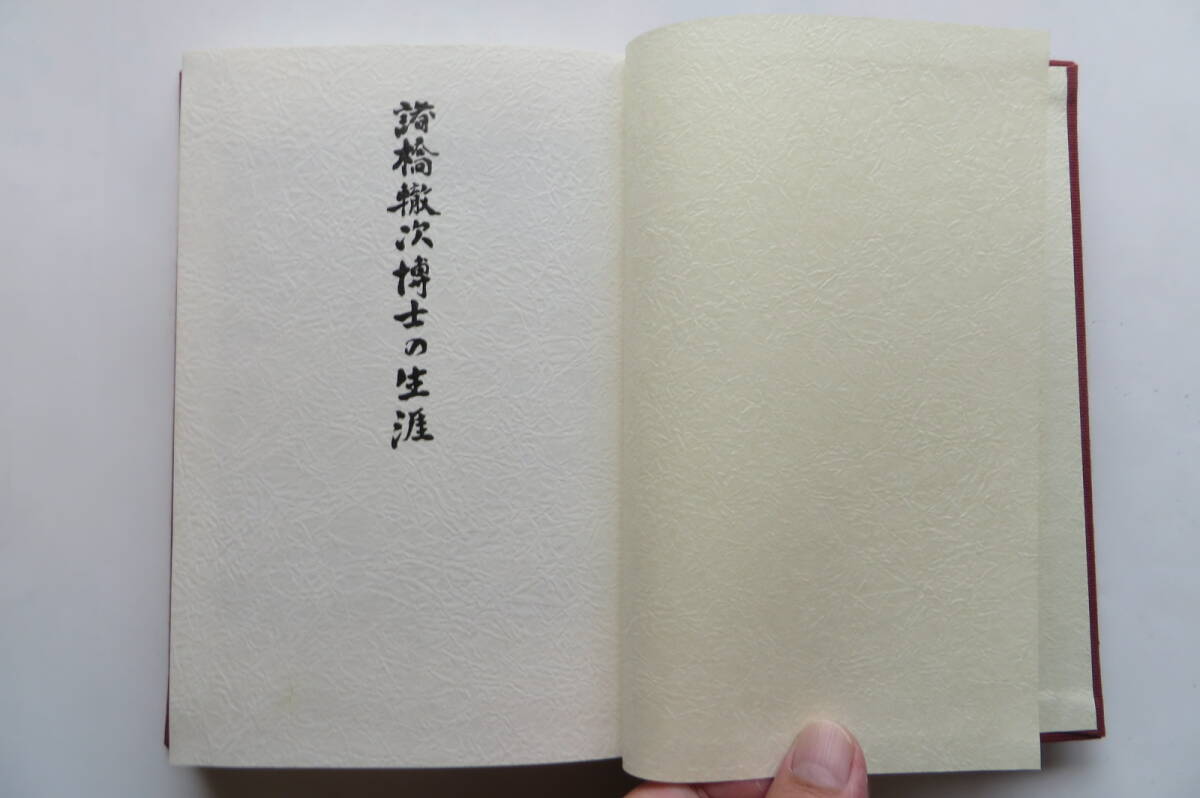 諸橋轍次博士の生涯